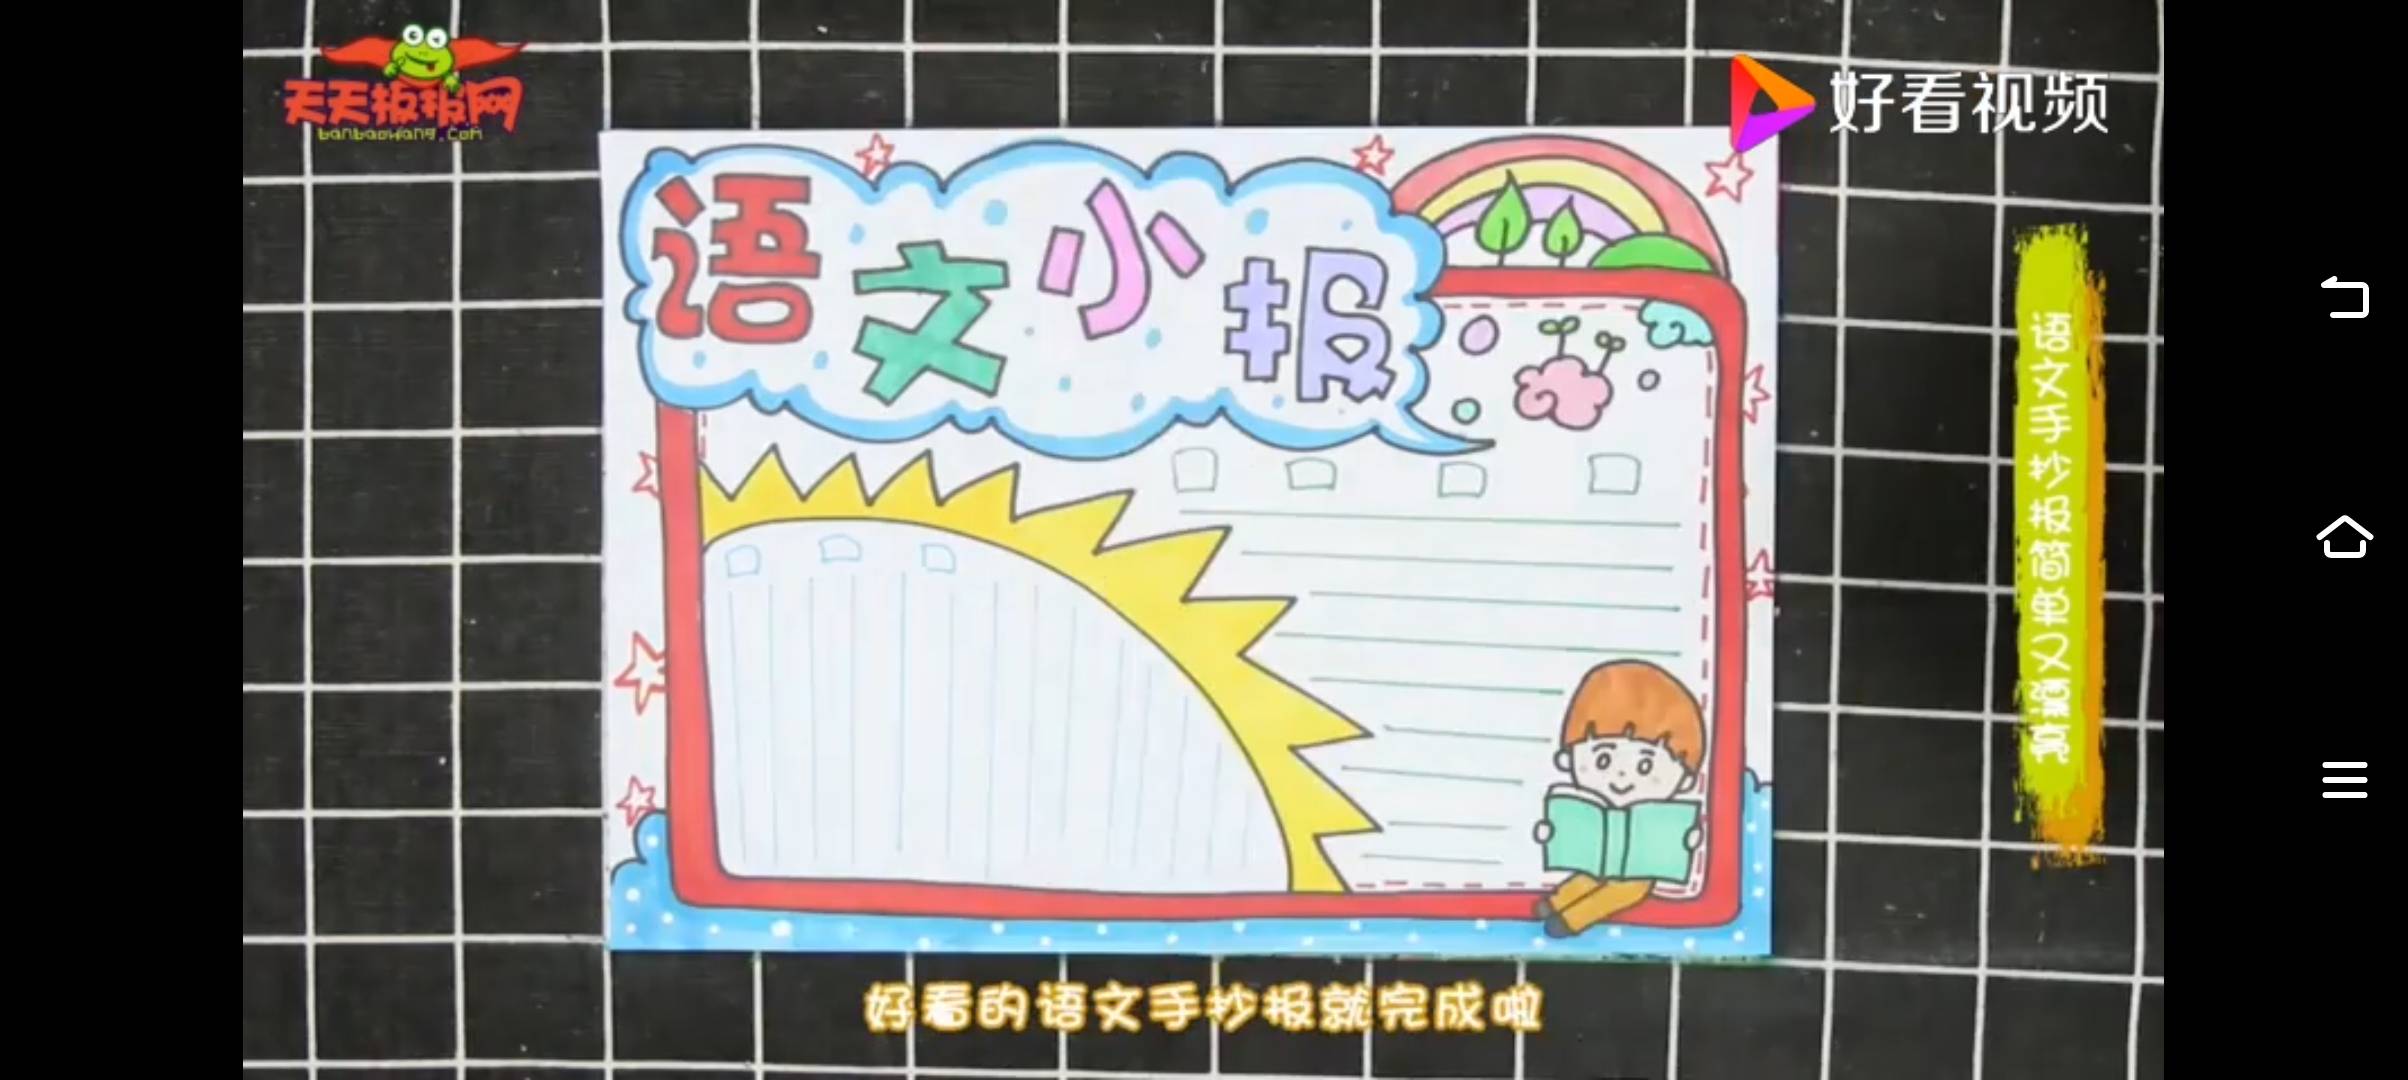 天天板报网
banbaowang.com
好看视频
语文小报
语文手抄报简单又漂亮
好看的语文手抄报就完成啦